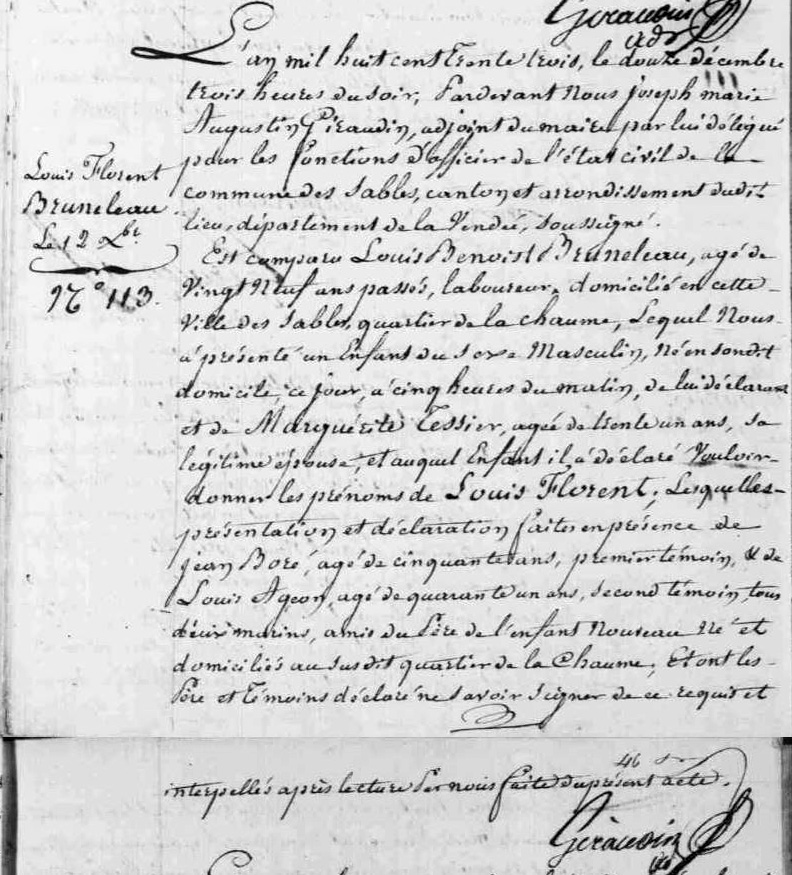 Giraudin
adj
L'an mil huit cent trente trois, le douze décembre
trois heures du soir, Pardevant Nous joseph marie
Augustin Giraudin, adjoint du maire par lui délégué
pour les fonctions d'officier de l'état civil de la
commune des Sables, canton et arrondissement dudit
lieu, département de la Vendée, soussigné.
Louis Florent
Bruneleau
Le 12 Xbre
N° 113.
Est comparu Louis Benoist Bruneleau, agé de
Vingt Neuf ans passés, laboureur, domicilié en cette
Ville des Sables, quartier de la chaume, Lequel Nous
a présenté un Enfant du sexe Masculin, Né en sondit
domicile, ce jour, à cinq heures du matin, de lui déclarant
et de Marguérite Tessier, agée de trente un ans, sa
légitime épouse, et auquel Enfant il a déclaré Vouloir
donner les prénoms de Louis Florent; Lesquelles
présentation et déclaration faites en présence de
jean Boré, agé de cinquante ans, premier témoin, & de
Louis Ageon, agé de quarante un ans, second témoin, tous
deux marins, amis du Père de l'enfant Nouveau Né et
domiciliés au susdit quartier de la Chaume; Et ont les
Père et témoins déclaré ne savoir signer de ce requis et
46
interpellés après lecture Par nous faite du présent acte.
Giraudin
adj